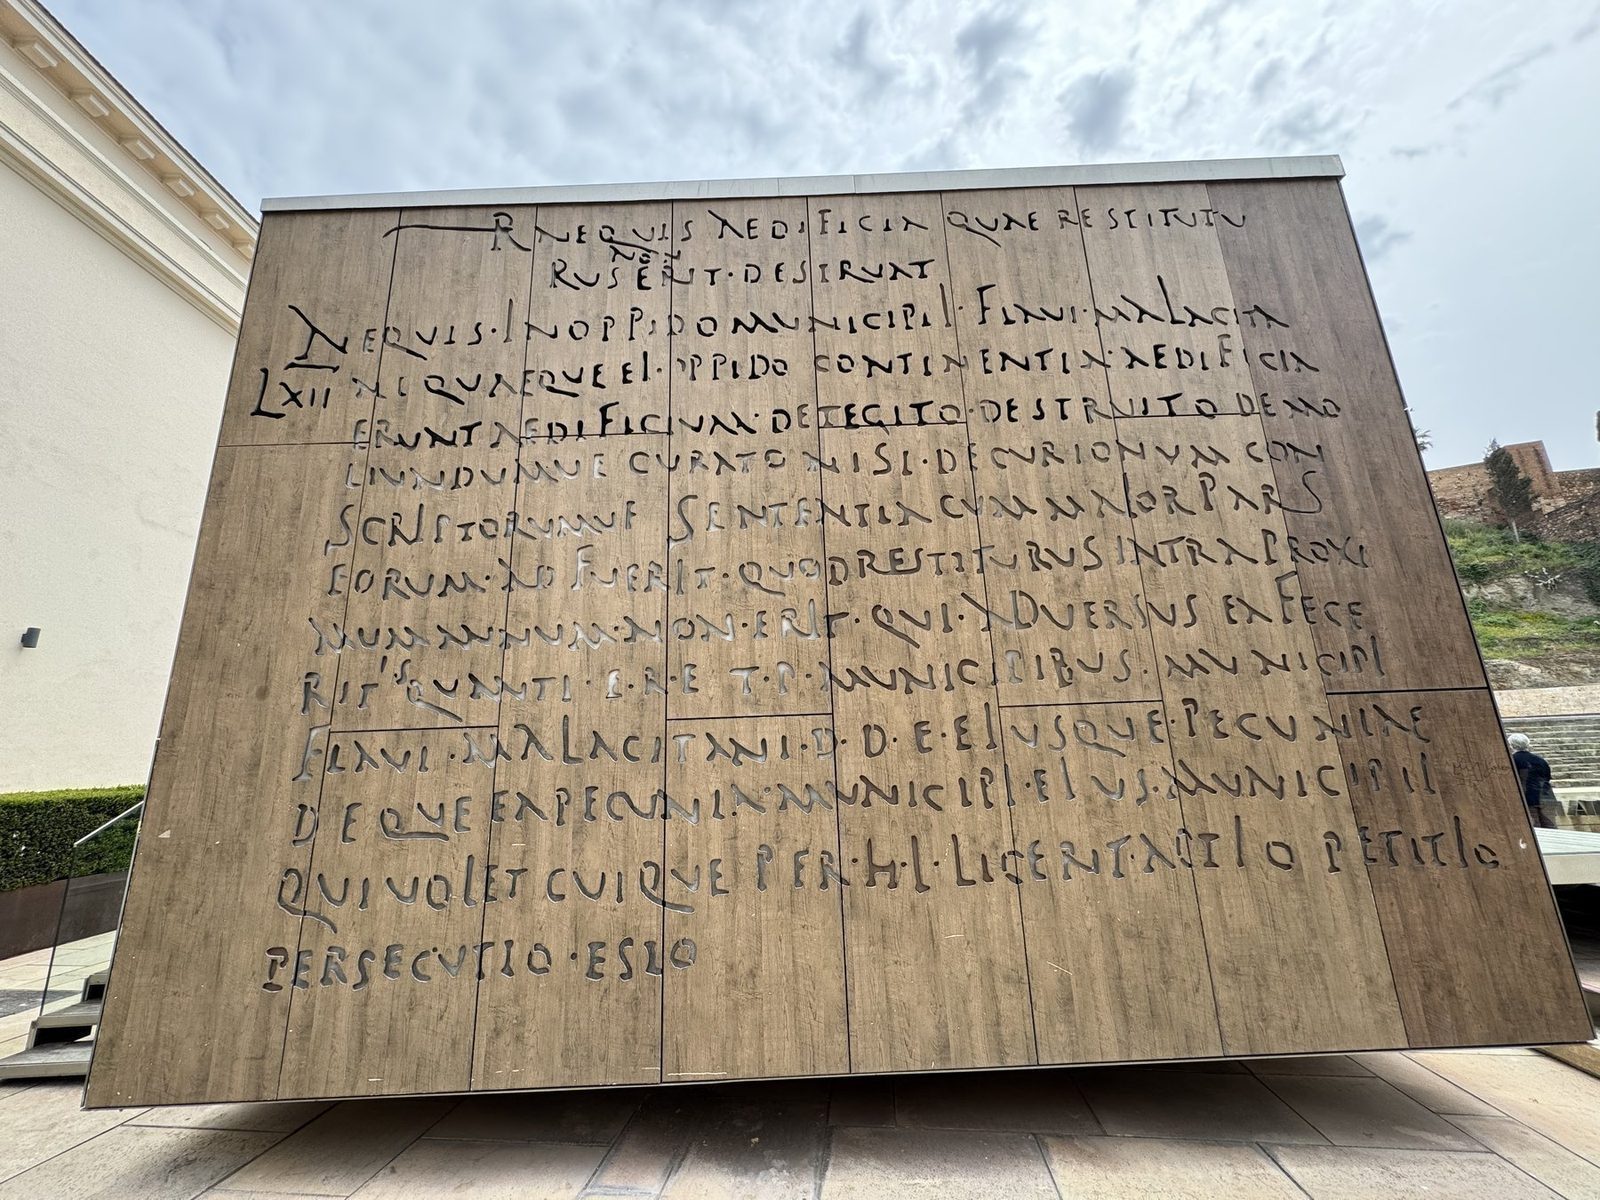 R NEQUIS AEDIFICIA QUAE RESTITUTU
NON
RUS ERIT·DESTRUAT
NEQUIS·IN OPPIDO MUNICIPII·FLAVI·MALACITA
LXII NI QUAEQUE EI·OPPIDO CONTINENTIA·AEDIFICIA
ERUNT AEDIFICIUM·DETEGITO·DESTRUITO DEMO
LIUNDUMVE CURATO NISI·DECURIONUM CON
SCRIPTORUMVE SENTENTIA CUM MAIOR PARS
EORUM·AD FUERIT·QUOD RESTITURUS INTRA PROXI
MUM ANNUM·NON·ERIT·QUI·ADVERSUS EA FECE
RIT IS QUANTI·E·R·E T·P·MUNICIPIBUS·MUNICIPI
FLAVI·MALACITANI·D·D·E·EIUSQUE·PECUNIAE
DEQUE EA PECUNIA·MUNICIPI·EIUS·MUNICIPII
QUI VOLET CUIQUE PER·H·L·LICEBIT·ACTIO PETITIO
PERSECUTIO·ESTO